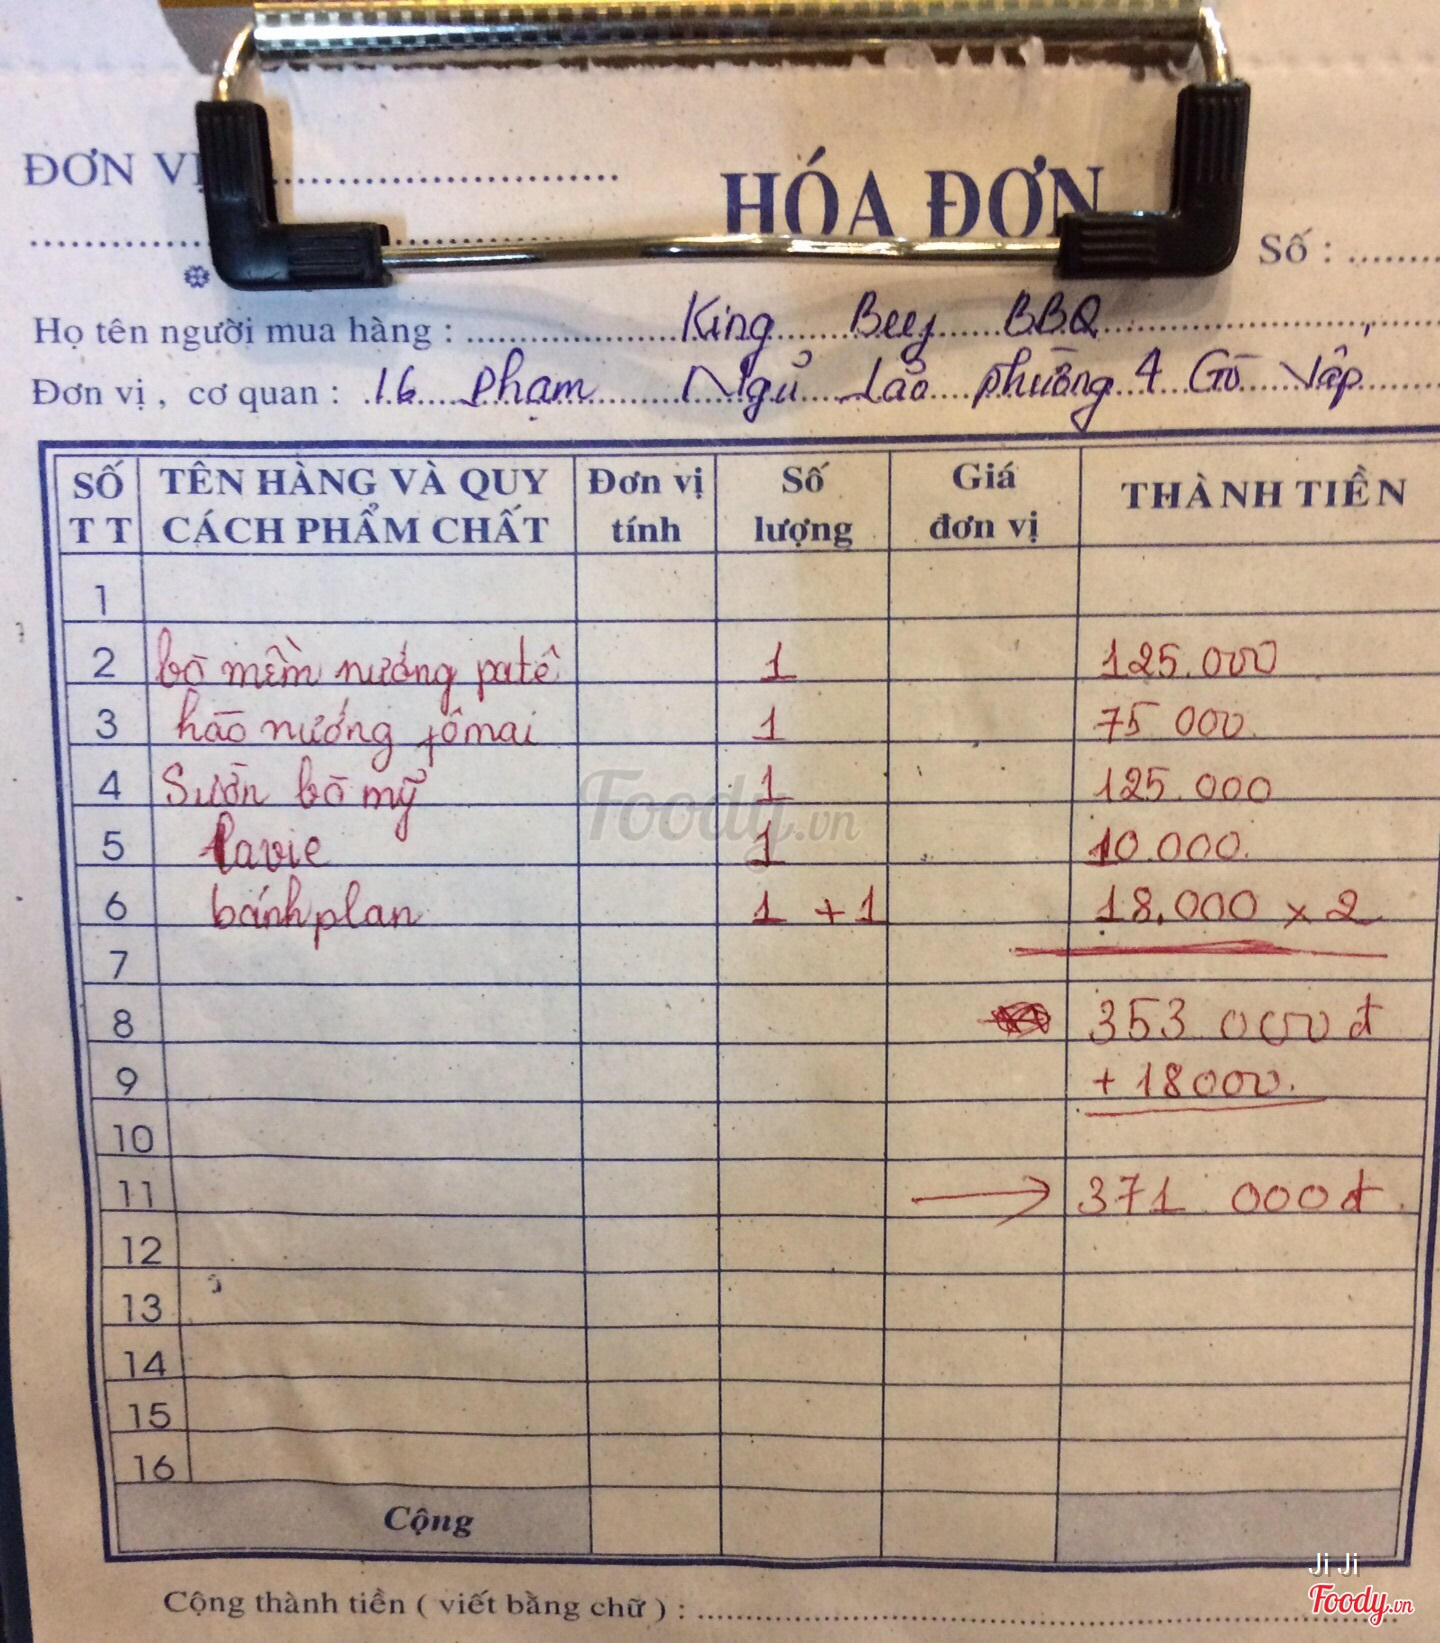 ĐƠN VỊ ........ HÓA ĐƠN
Số : ........
Họ tên người mua hàng : King Beef BBQ
Đơn vị , cơ quan : 16 Phạm Ngũ Lão phường 4 Gò Vấp
SỐ TT TÊN HÀNG VÀ QUY CÁCH PHẨM CHẤT Đơn vị tính Số lượng Giá đơn vị THÀNH TIỀN
1
2 bò mềm nướng patê 1 125.000
3 hào nướng fômai 1 75 000
4 Sườn bò mỹ 1 125.000
5 Lavie 1 10.000
6 bánh plan 1 + 1 18.000 x 2
7
8 353 000 đ
9 + 18000.
10
11 → 371 000đ
12
13
14
15
16
Cộng
Cộng thành tiền ( viết bằng chữ ) : ........
Foody.vn
Ji Ji
Foody.vn